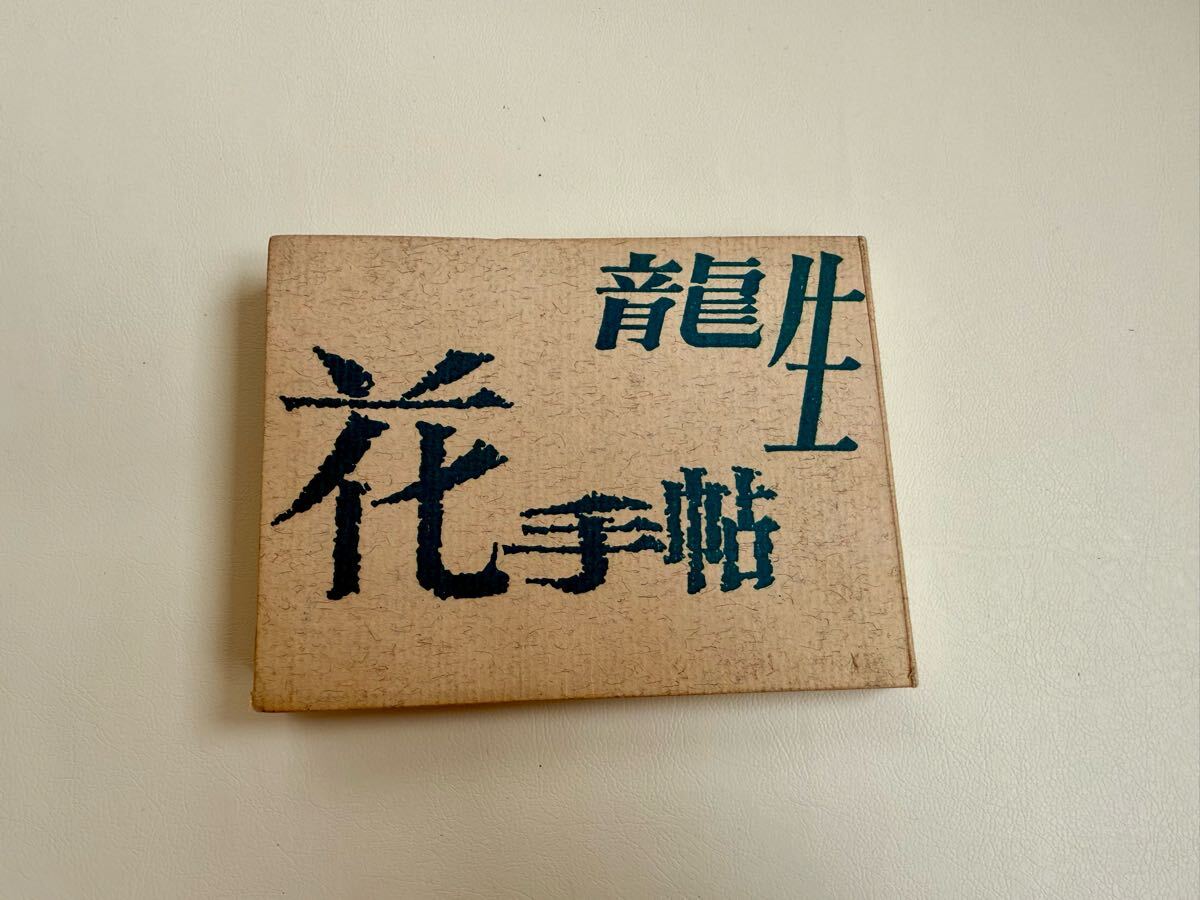 龍生
花手帖